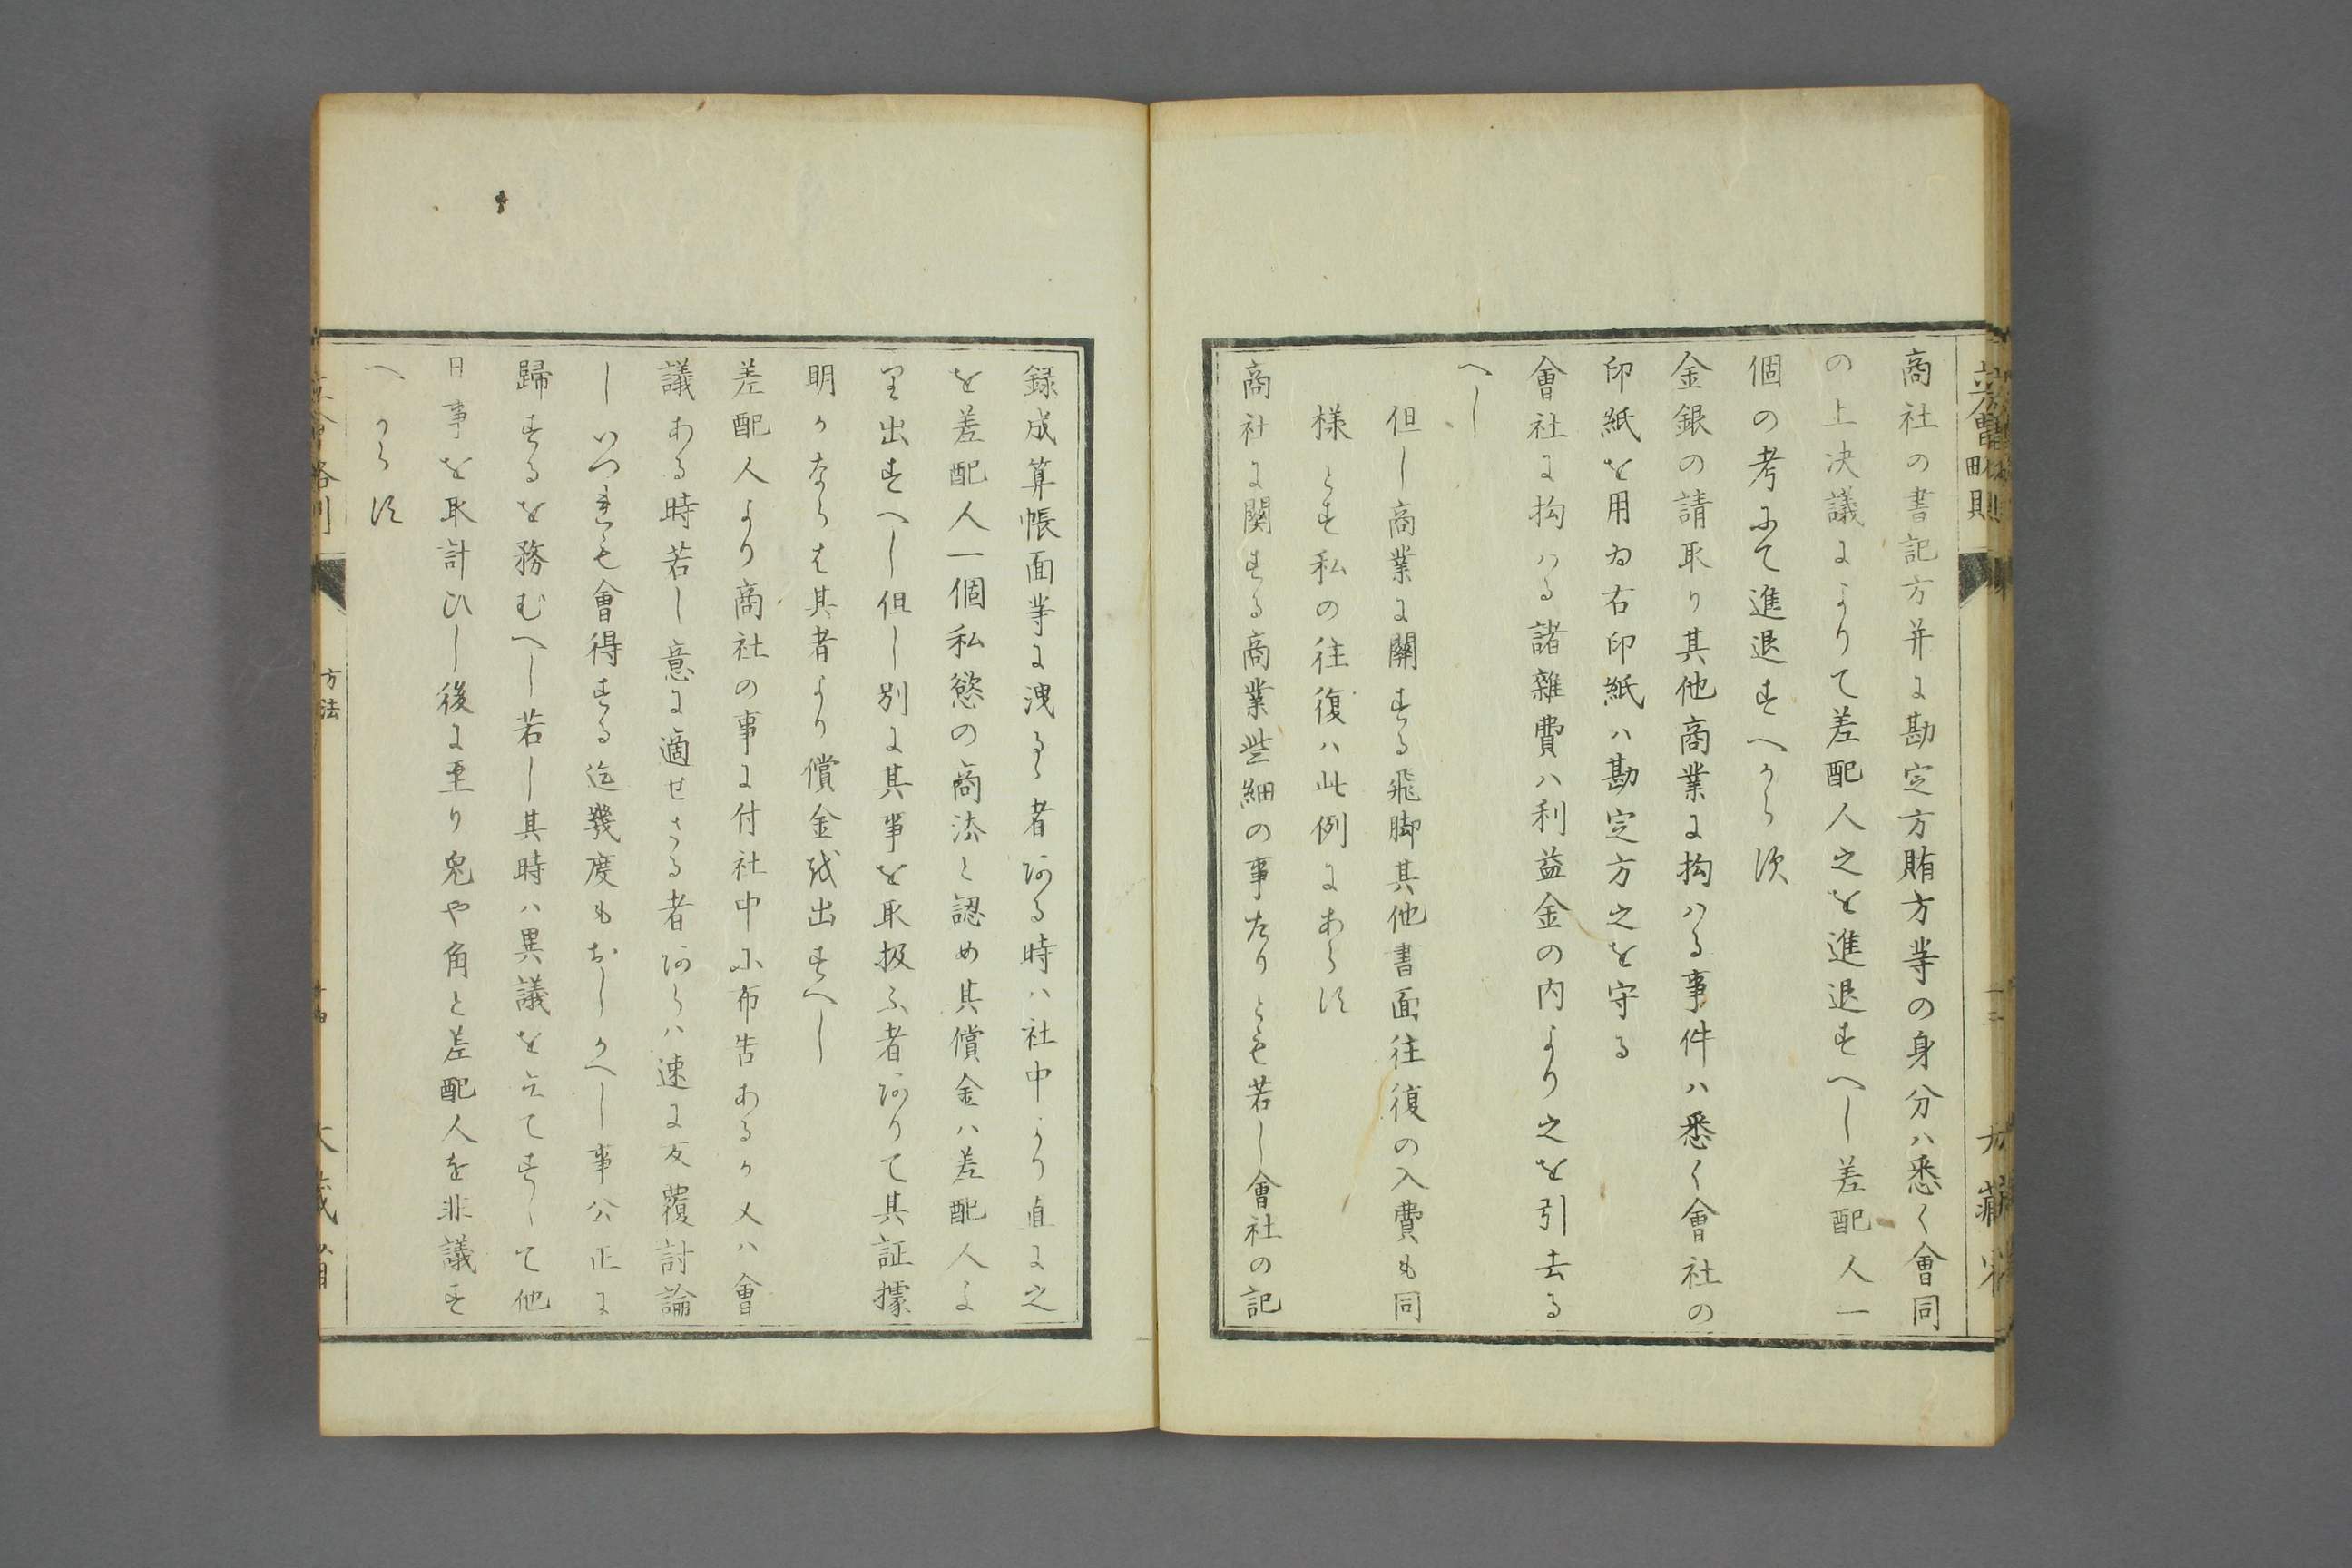 商社の書記方并に勘定方賄方等の身分ハ悉く會同
の上决議によりて差配人之を進退すへし差配人一
個の考にて進退すへからす
金銀の請取り其他商業に拘ハる事件ハ悉く會社の
印紙を用ゐ右印紙ハ勘定方之を守る
會社に拘ハる諸雜費ハ利益金の内より之を引去る
へし
但し商業に關する飛脚其他書面往復の入費も同
様とす私の往復ハ此例にあらす
商社に関する商業些細の事たりとも若し會社の記
録成算帳面等に洩るゝ者ある時ハ社中より直に之
を差配人一個私慾の商法と認め其償金ハ差配人よ
り出すへし但し別に其事を取扱ふ者ありて其証據
明かならは其者より償金を出すへし
差配人より商社の事に付社中に布告あるか又ハ會
議ある時若し意に適せさる者あらハ速に反覆討論
しいつれも會得する迄幾度もおしかへし事公正に
歸するを務むへし若し其時ハ異議を立てすして他
日事を取計ひし後に至り兎や角と差配人を非議す
へからす
方法
大藏省